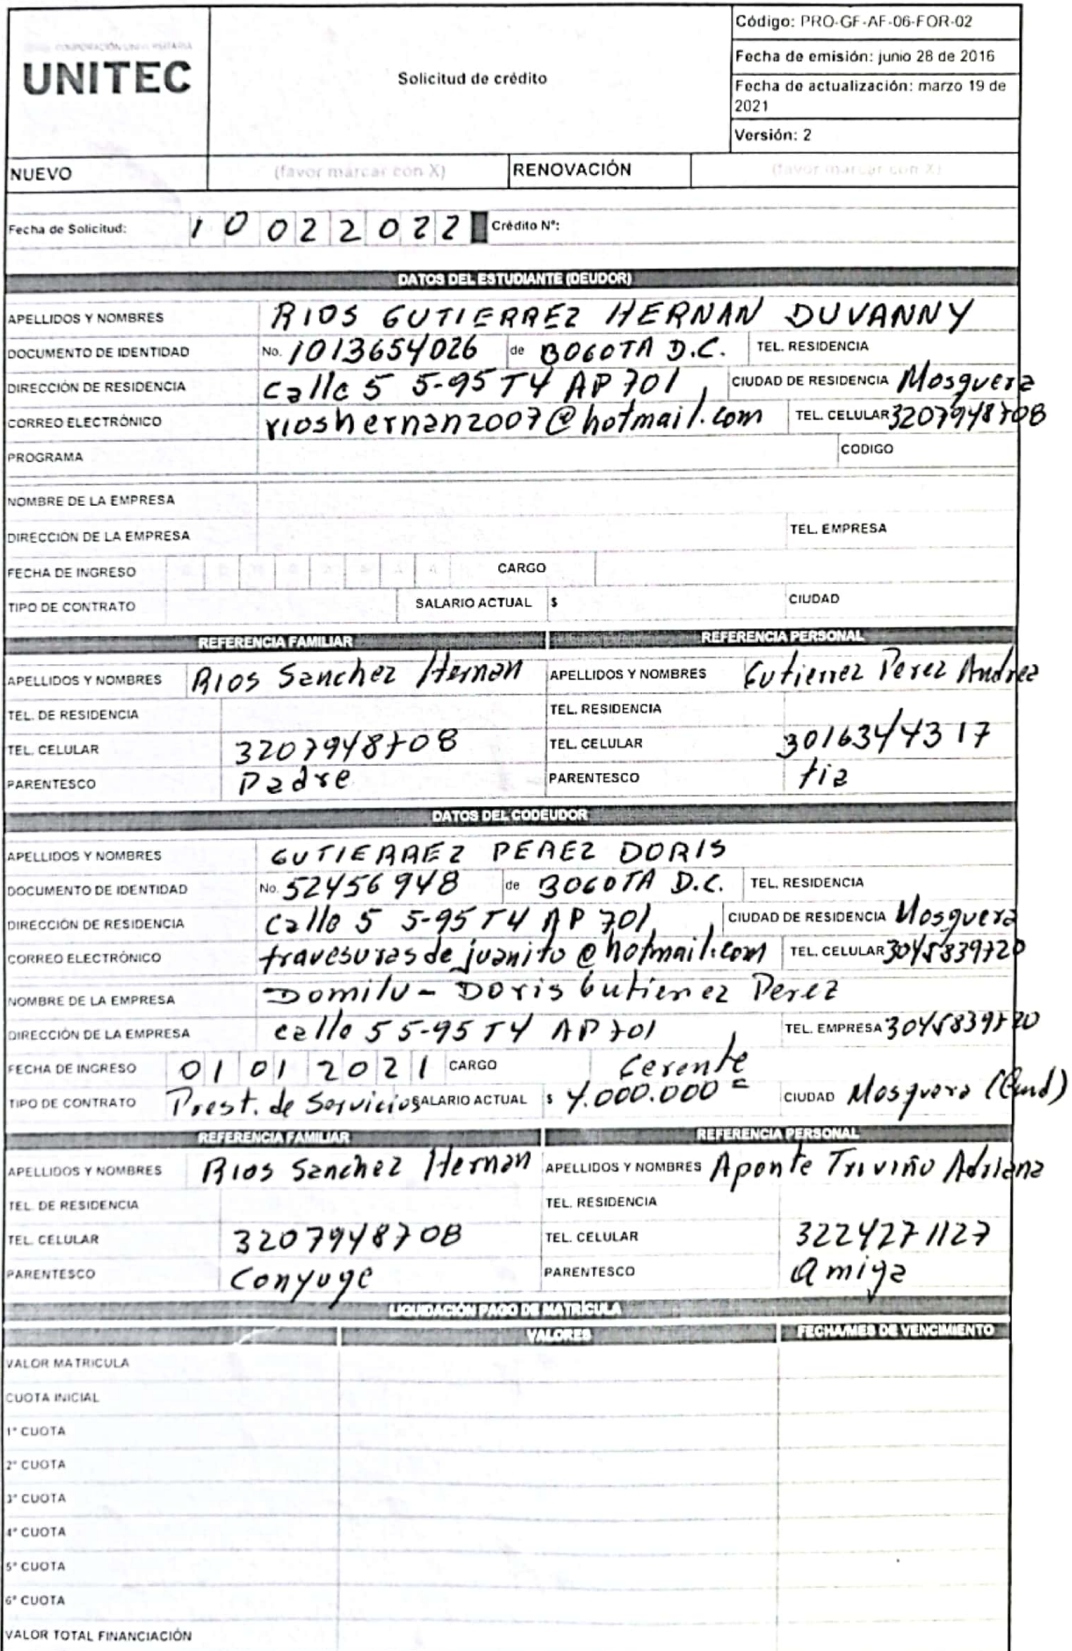 UNITEC
Solicitud de crédito
Código: PRO-GF-AF-06-FOR-02
Fecha de emisión: junio 28 de 2016
Fecha de actualización: marzo 19 de
2021
Versión: 2
NUEVO (favor marcar con X) RENOVACIÓN (favor marcar con X)
Fecha de Solicitud: 10022022 Crédito N°:
DATOS DEL ESTUDIANTE (DEUDOR)
APELLIDOS Y NOMBRES RIOS GUTIERREZ HERNAN DUVANNY
DOCUMENTO DE IDENTIDAD No. 1013654026 de BOGOTA D.C. TEL. RESIDENCIA
DIRECCIÓN DE RESIDENCIA Calle 5 5-95 T4 AP 701, CIUDAD DE RESIDENCIA Mosquera
CORREO ELECTRÓNICO rioshernan2007@hotmail.com TEL. CELULAR 3207948708
PROGRAMA CODIGO
NOMBRE DE LA EMPRESA
DIRECCIÓN DE LA EMPRESA TEL. EMPRESA
FECHA DE INGRESO CARGO
TIPO DE CONTRATO SALARIO ACTUAL $ CIUDAD
REFERENCIA FAMILIAR REFERENCIA PERSONAL
APELLIDOS Y NOMBRES Rios Sanchez Hernan APELLIDOS Y NOMBRES Gutierrez Perez Andrea
TEL. DE RESIDENCIA TEL. RESIDENCIA
TEL. CELULAR 3207948708 TEL. CELULAR 3016344317
PARENTESCO Padre PARENTESCO tia
DATOS DEL CODEUDOR
APELLIDOS Y NOMBRES GUTIERREZ PEREZ DORIS
DOCUMENTO DE IDENTIDAD No. 52456948 de BOGOTA D.C. TEL. RESIDENCIA
DIRECCIÓN DE RESIDENCIA Calle 5 5-95 T4 AP 701, CIUDAD DE RESIDENCIA Mosquera
CORREO ELECTRÓNICO travesurasdejuanito@hotmail.com TEL. CELULAR 3045839720
NOMBRE DE LA EMPRESA Domilu - Doris Gutierrez Perez
DIRECCIÓN DE LA EMPRESA calle 5 5-95 T4 AP 701 TEL. EMPRESA 3045839720
FECHA DE INGRESO 01012021 CARGO Gerente
TIPO DE CONTRATO Prest. de Servicios SALARIO ACTUAL $ 4.000.000= CIUDAD Mosquera (Cund)
REFERENCIA FAMILIAR REFERENCIA PERSONAL
APELLIDOS Y NOMBRES Rios Sanchez Hernan APELLIDOS Y NOMBRES Aponte Triviño Adriana
TEL. DE RESIDENCIA TEL. RESIDENCIA
TEL. CELULAR 3207948708 TEL. CELULAR 3224271127
PARENTESCO Conyuge PARENTESCO amiga
LIQUIDACIÓN PAGO DE MATRÍCULA
VALORES FECHA/MES DE VENCIMIENTO
VALOR MATRICULA
CUOTA INICIAL
1° CUOTA
2° CUOTA
3° CUOTA
4° CUOTA
5° CUOTA
6° CUOTA
VALOR TOTAL FINANCIACIÓN